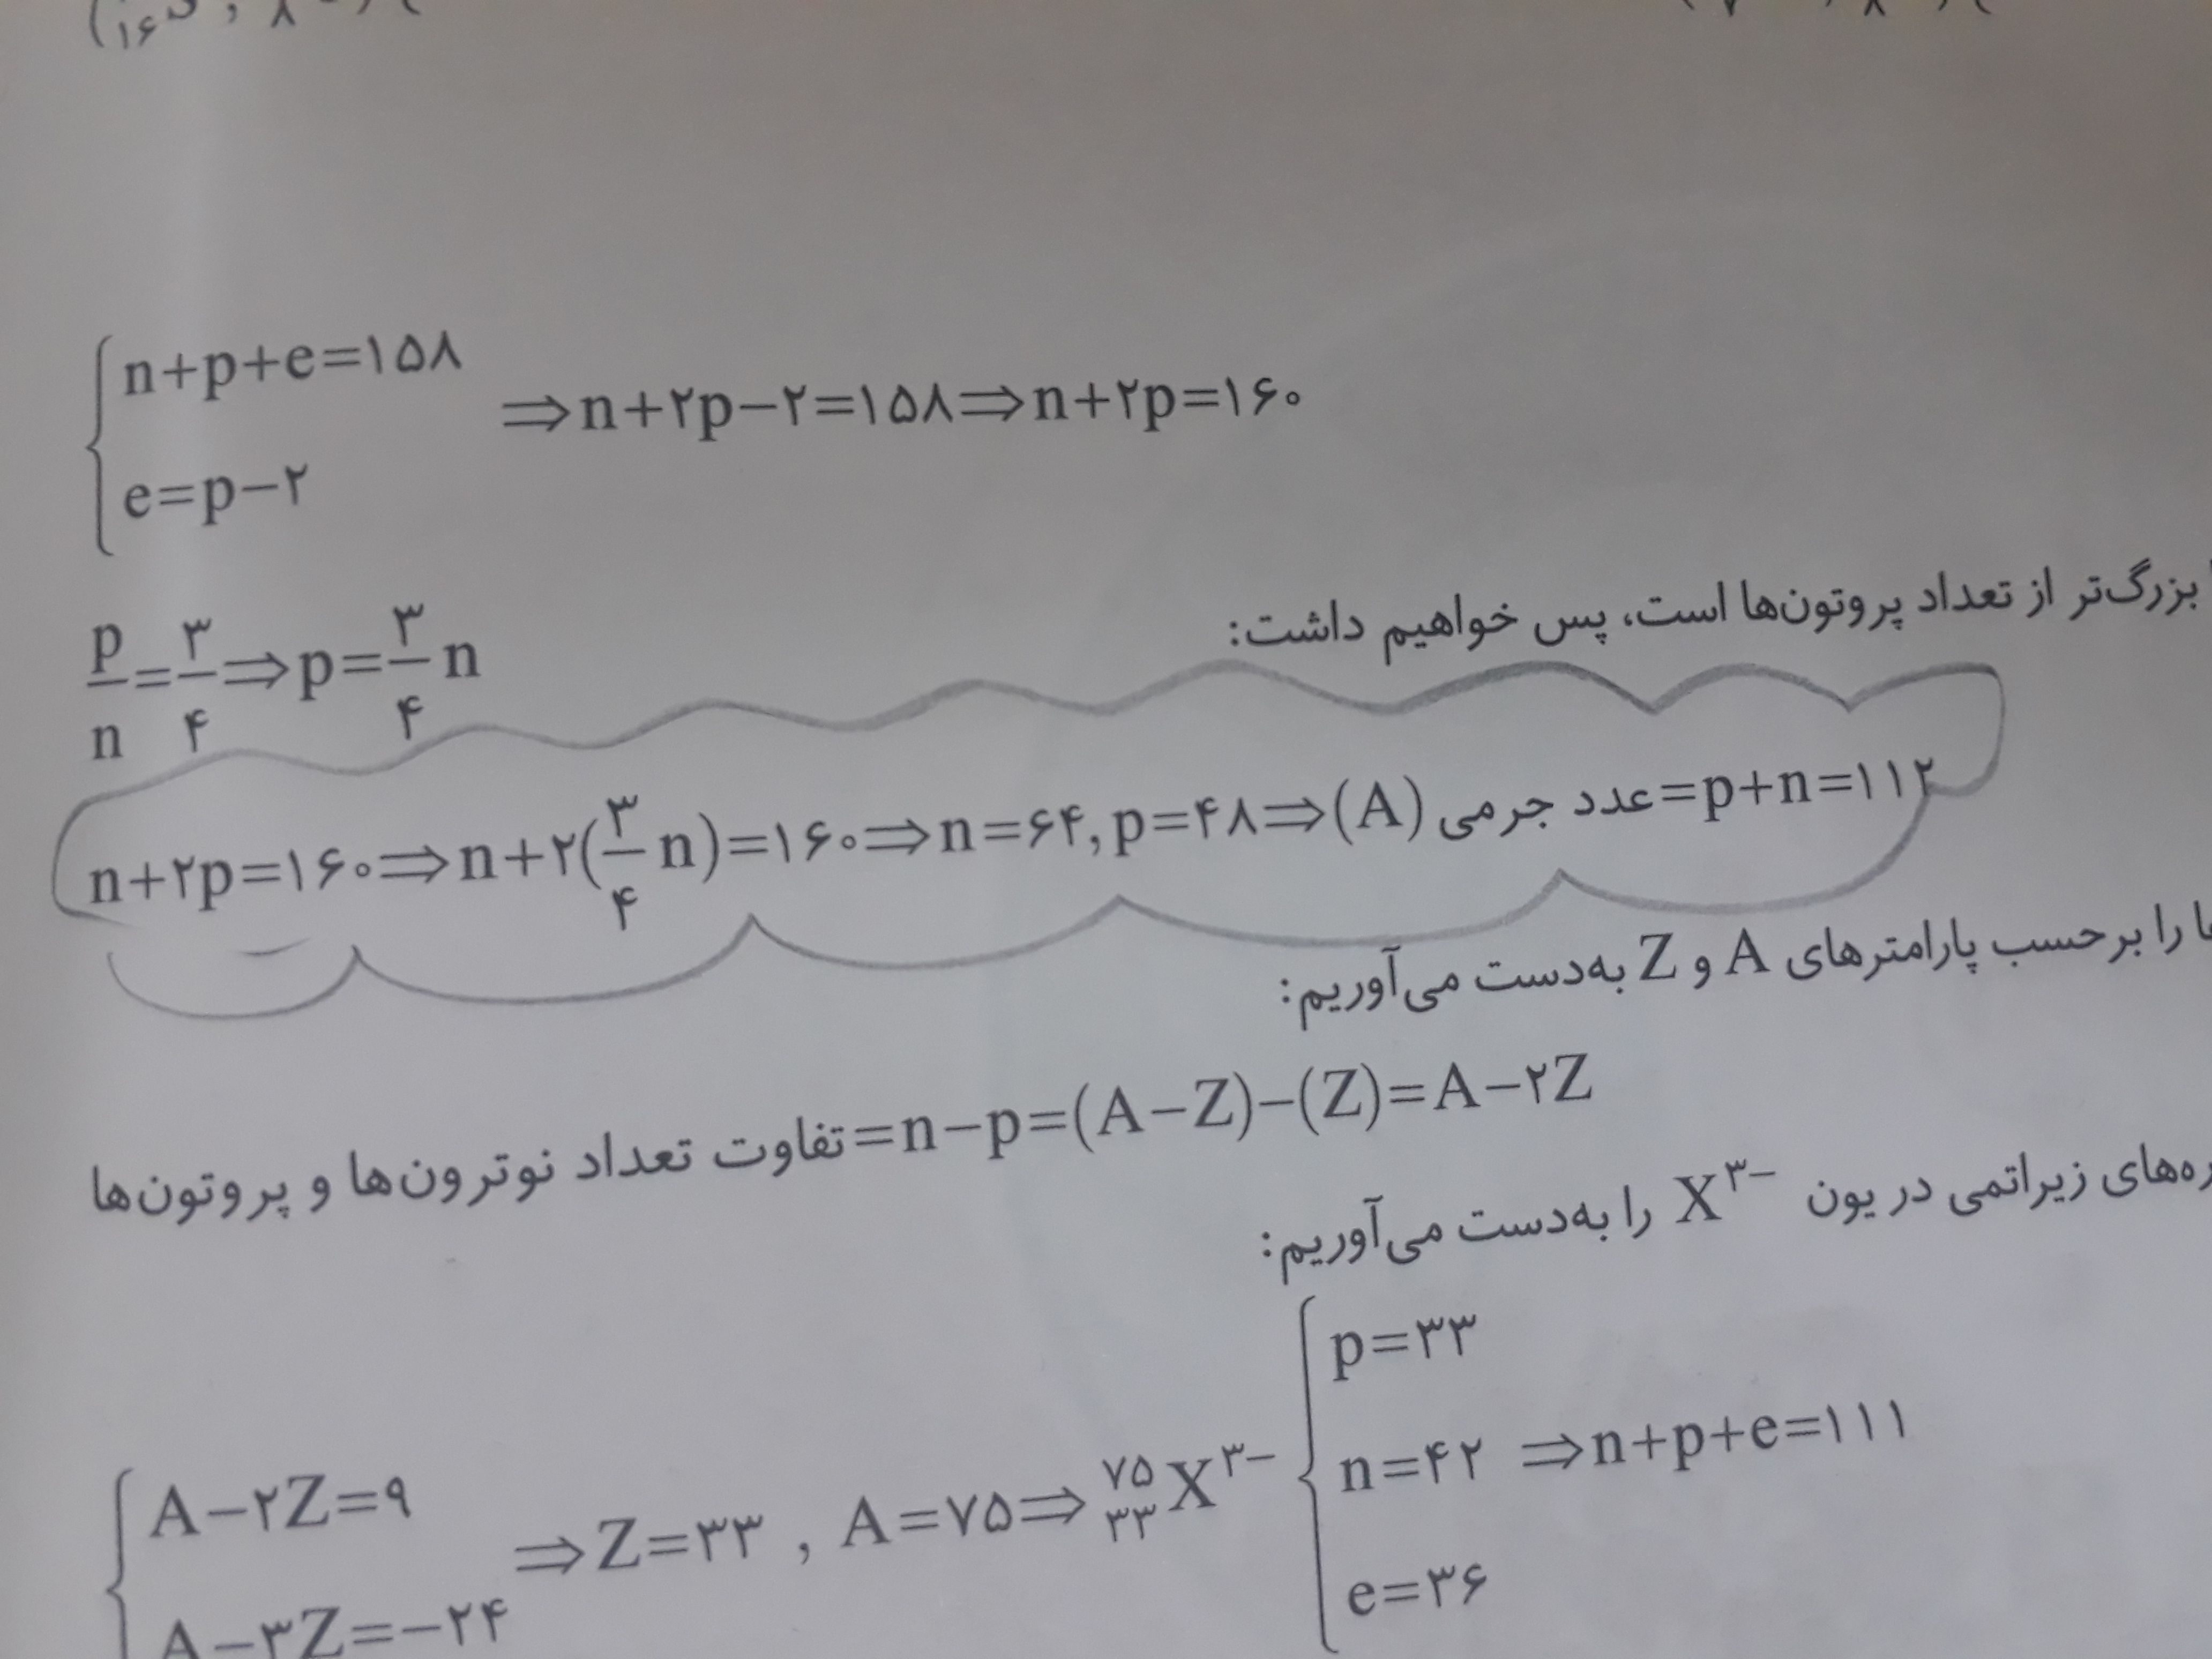 n+p+e=۱۵۸
⇒n+۲p−۲=۱۵۸⇒n+۲p=۱۶۰
e=p−۲
بزرگ‌تر از تعداد پروتون‌ها است، پس خواهیم داشت:
p/n=۳/۴⇒p=۳/۴ n
n+۲p=۱۶۰⇒n+۲(۳/۴ n)=۱۶۰⇒n=۶۴, p=۴۸⇒(A) عدد جرمی=p+n=۱۱۲
را برحسب پارامترهای A و Z به‌دست می‌آوریم:
تفاوت تعداد نوترون‌ها و پروتون‌ها=n−p=(A−Z)−(Z)=A−۲Z
زیراتمی در یون X³⁻ را به‌دست می‌آوریم:
p=۳۳
A−۲Z=۹
⇒Z=۳۳ , A=۷۵⇒ ۷۵ ۳۳ X ۳− n=۴۲ ⇒n+p+e=۱۱۱
A−۳Z=−۲۴
e=۳۶